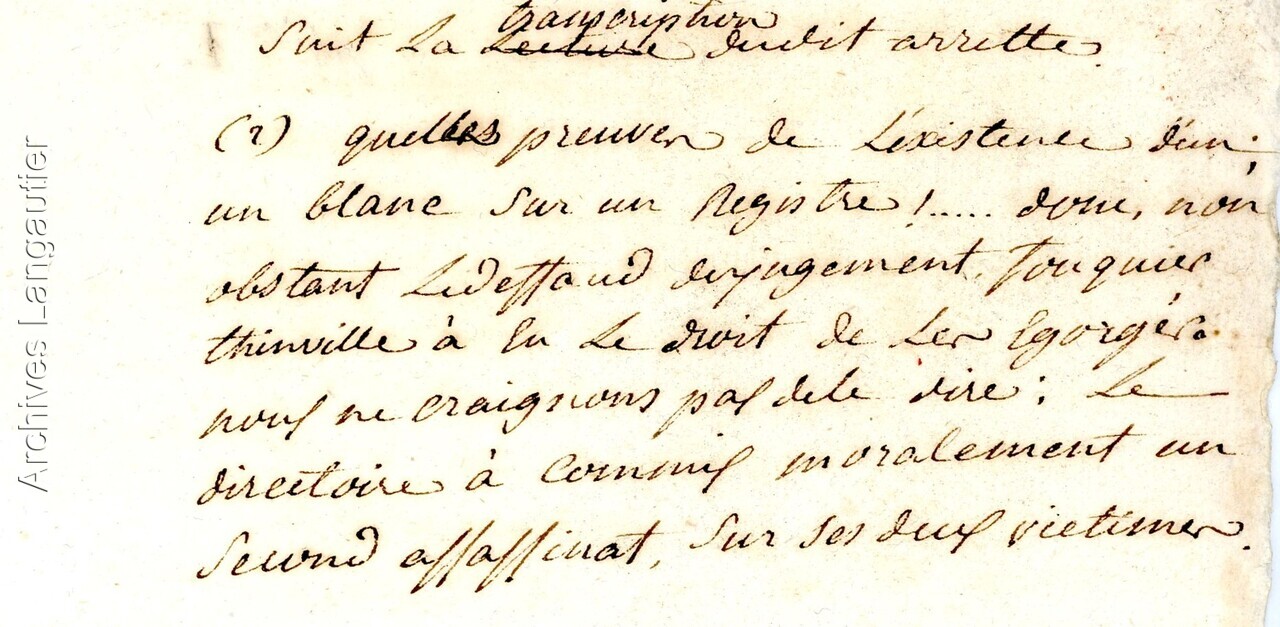 transcription
Suit La Lecture dudit arrette.
(2) quelles preuves de L'existence d'un;
un blanc sur un Registre!..... donc, non
obstant Ledeffaud dejugement, fouquier
thinville à Eu Le droit de Les Egorgér.
nous ne craignons pas dele dire: Le
directoire à Commis moralement un
Second assassinat, Sur ses deux victimes.
Archives Langautier